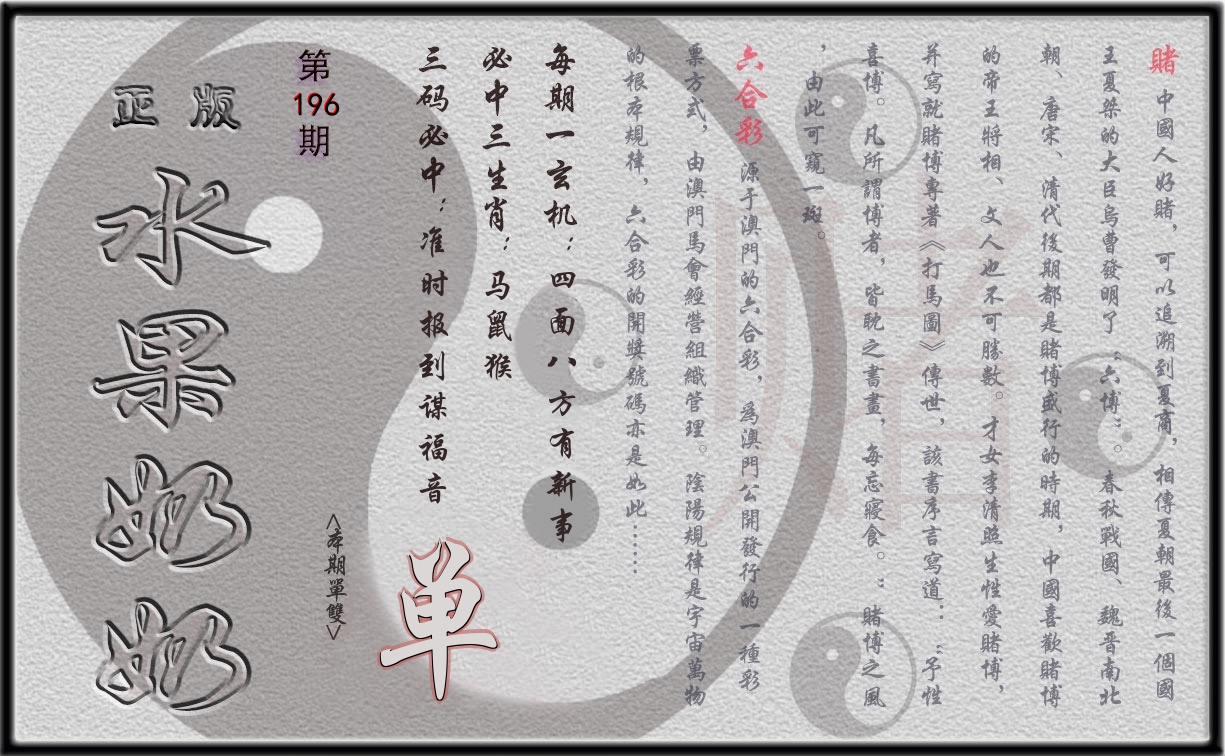 賭 中國人好賭，可以追溯到夏商，相傳夏朝最後一個國
王夏桀的大臣烏曹發明了“六博”。春秋戰國、魏晋南北
朝、唐宋、清代後期都是賭博盛行的時期，中國喜歡賭博
的帝王將相、文人也不可勝數。才女李清照生性愛賭博，
并寫就賭博專著《打馬圖》傳世，該書序言寫道：“予性
喜博。凡所謂博者，皆耽之晝晝，每忘寢食。”賭博之風
，由此可窺一斑。
六合彩 源于澳門的六合彩，為澳門公開發行的一種彩
票方式，由澳門馬會經營組織管理。陰陽規律是宇宙萬物
的根本規律，六合彩的開獎號碼亦是如此……
每期一玄机：四面八方有新事
必中三生肖：马鼠猴
三码必中：准时报到谋福音
<本期單雙>
单
第196期
正版
水果奶奶
賭